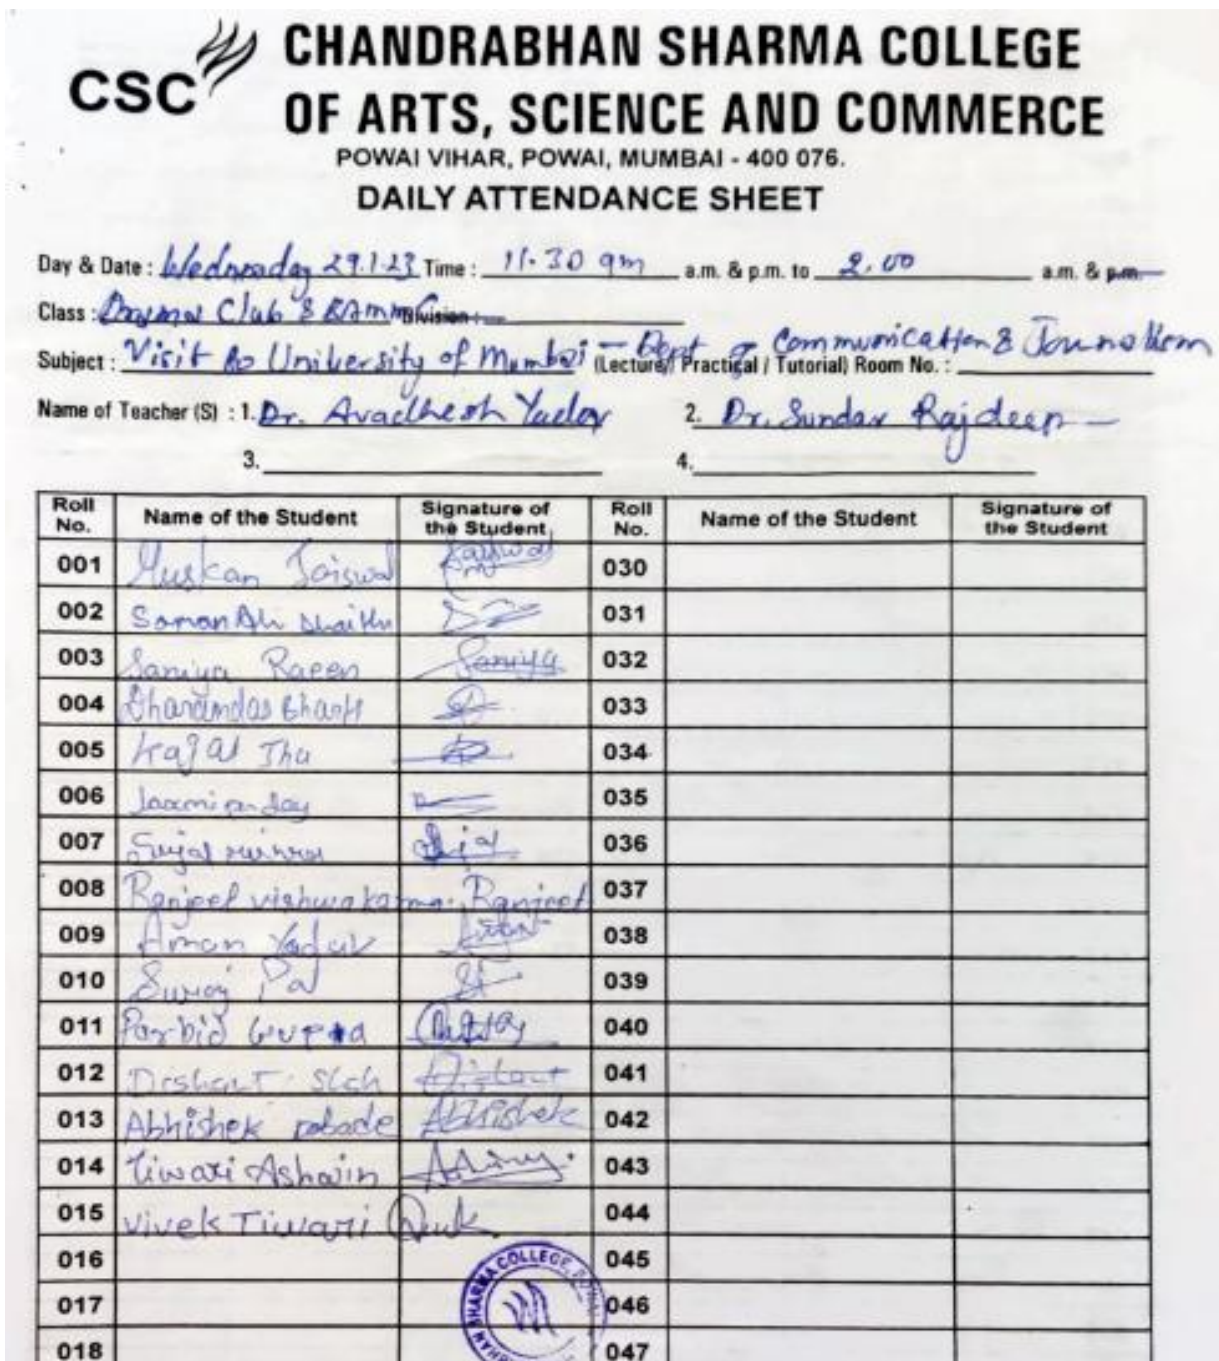 CSC
CHANDRABHAN SHARMA COLLEGE
OF ARTS, SCIENCE AND COMMERCE
POWAI VIHAR, POWAI, MUMBAI - 400 076.
DAILY ATTENDANCE SHEET
Day & Date : Wednesday 29.1.23 Time : 11.30 am a.m. & p.m. to 2.00 a.m. & p.m.
Class : Drama Club & BAMMC Division :
Subject : Visit to University of Mumbai - Dept of Communication & Journalism (Lecture / Practical / Tutorial) Room No. :
Name of Teacher (S) : 1. Dr. Avadhesh Yadav 2. Dr. Sundar Rajdeep
3. 4.
Roll No. Name of the Student Signature of the Student Roll No. Name of the Student Signature of the Student
001 Muskan Jaiswal Jaiswal 030
002 Saman Ali Shaikh 031
003 Saniya Raeen Saniya 032
004 033
005 Kajal Jha 034
006 035
007 036
008 Ranjeet vishwakarma Ranjeet 037
009 Aman Yadav Aman 038
010 Suraj Pal 039
011 Gupta 040
012 Dishant 041
013 Abhishek Abhishek 042
014 Tiwari Ashwin 043
015 Vivek Tiwari 044
016 045
017 046
018 047
SHARMA COLLEGE